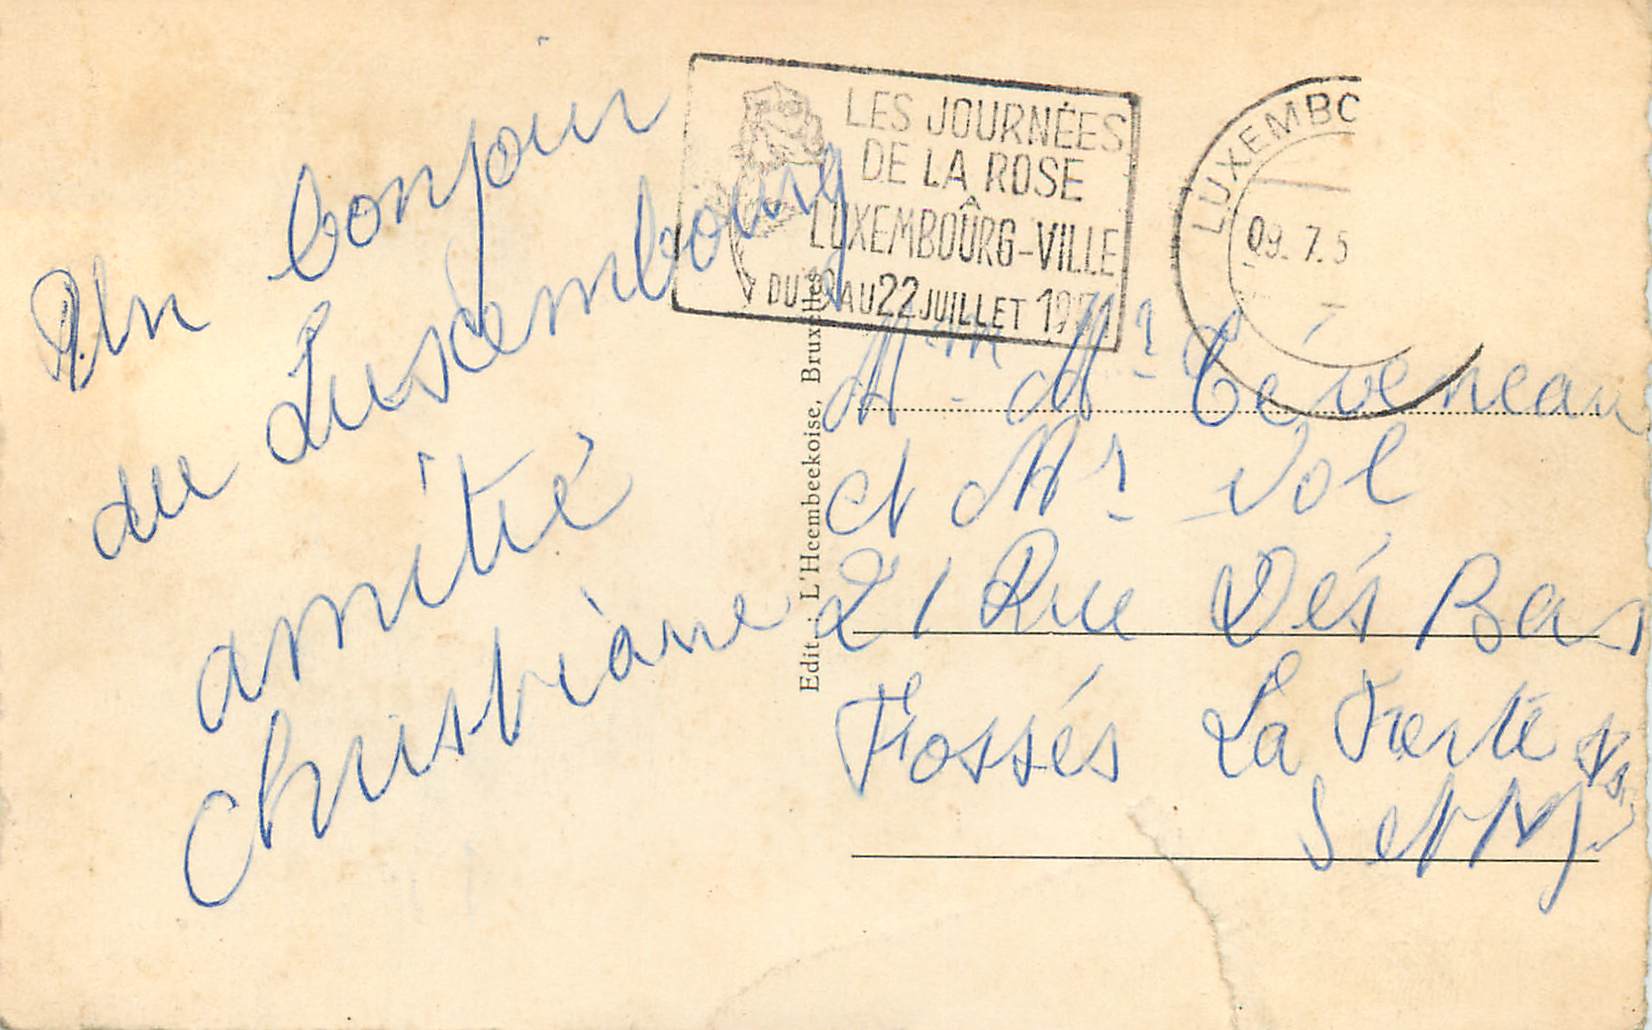 Un bonjour
du Luxembourg
amitié
Christiane
LES JOURNÉES
DE LA ROSE
LUXEMBOURG-VILLE
DU AU 22 JUILLET
LUXEMBO
09. 7. 5
Edit.: L'Heembeekoise, Bruxelles
Mr
et Mr Vol
21 Rue Dés Bas
Fossés La Ferté s
S et M